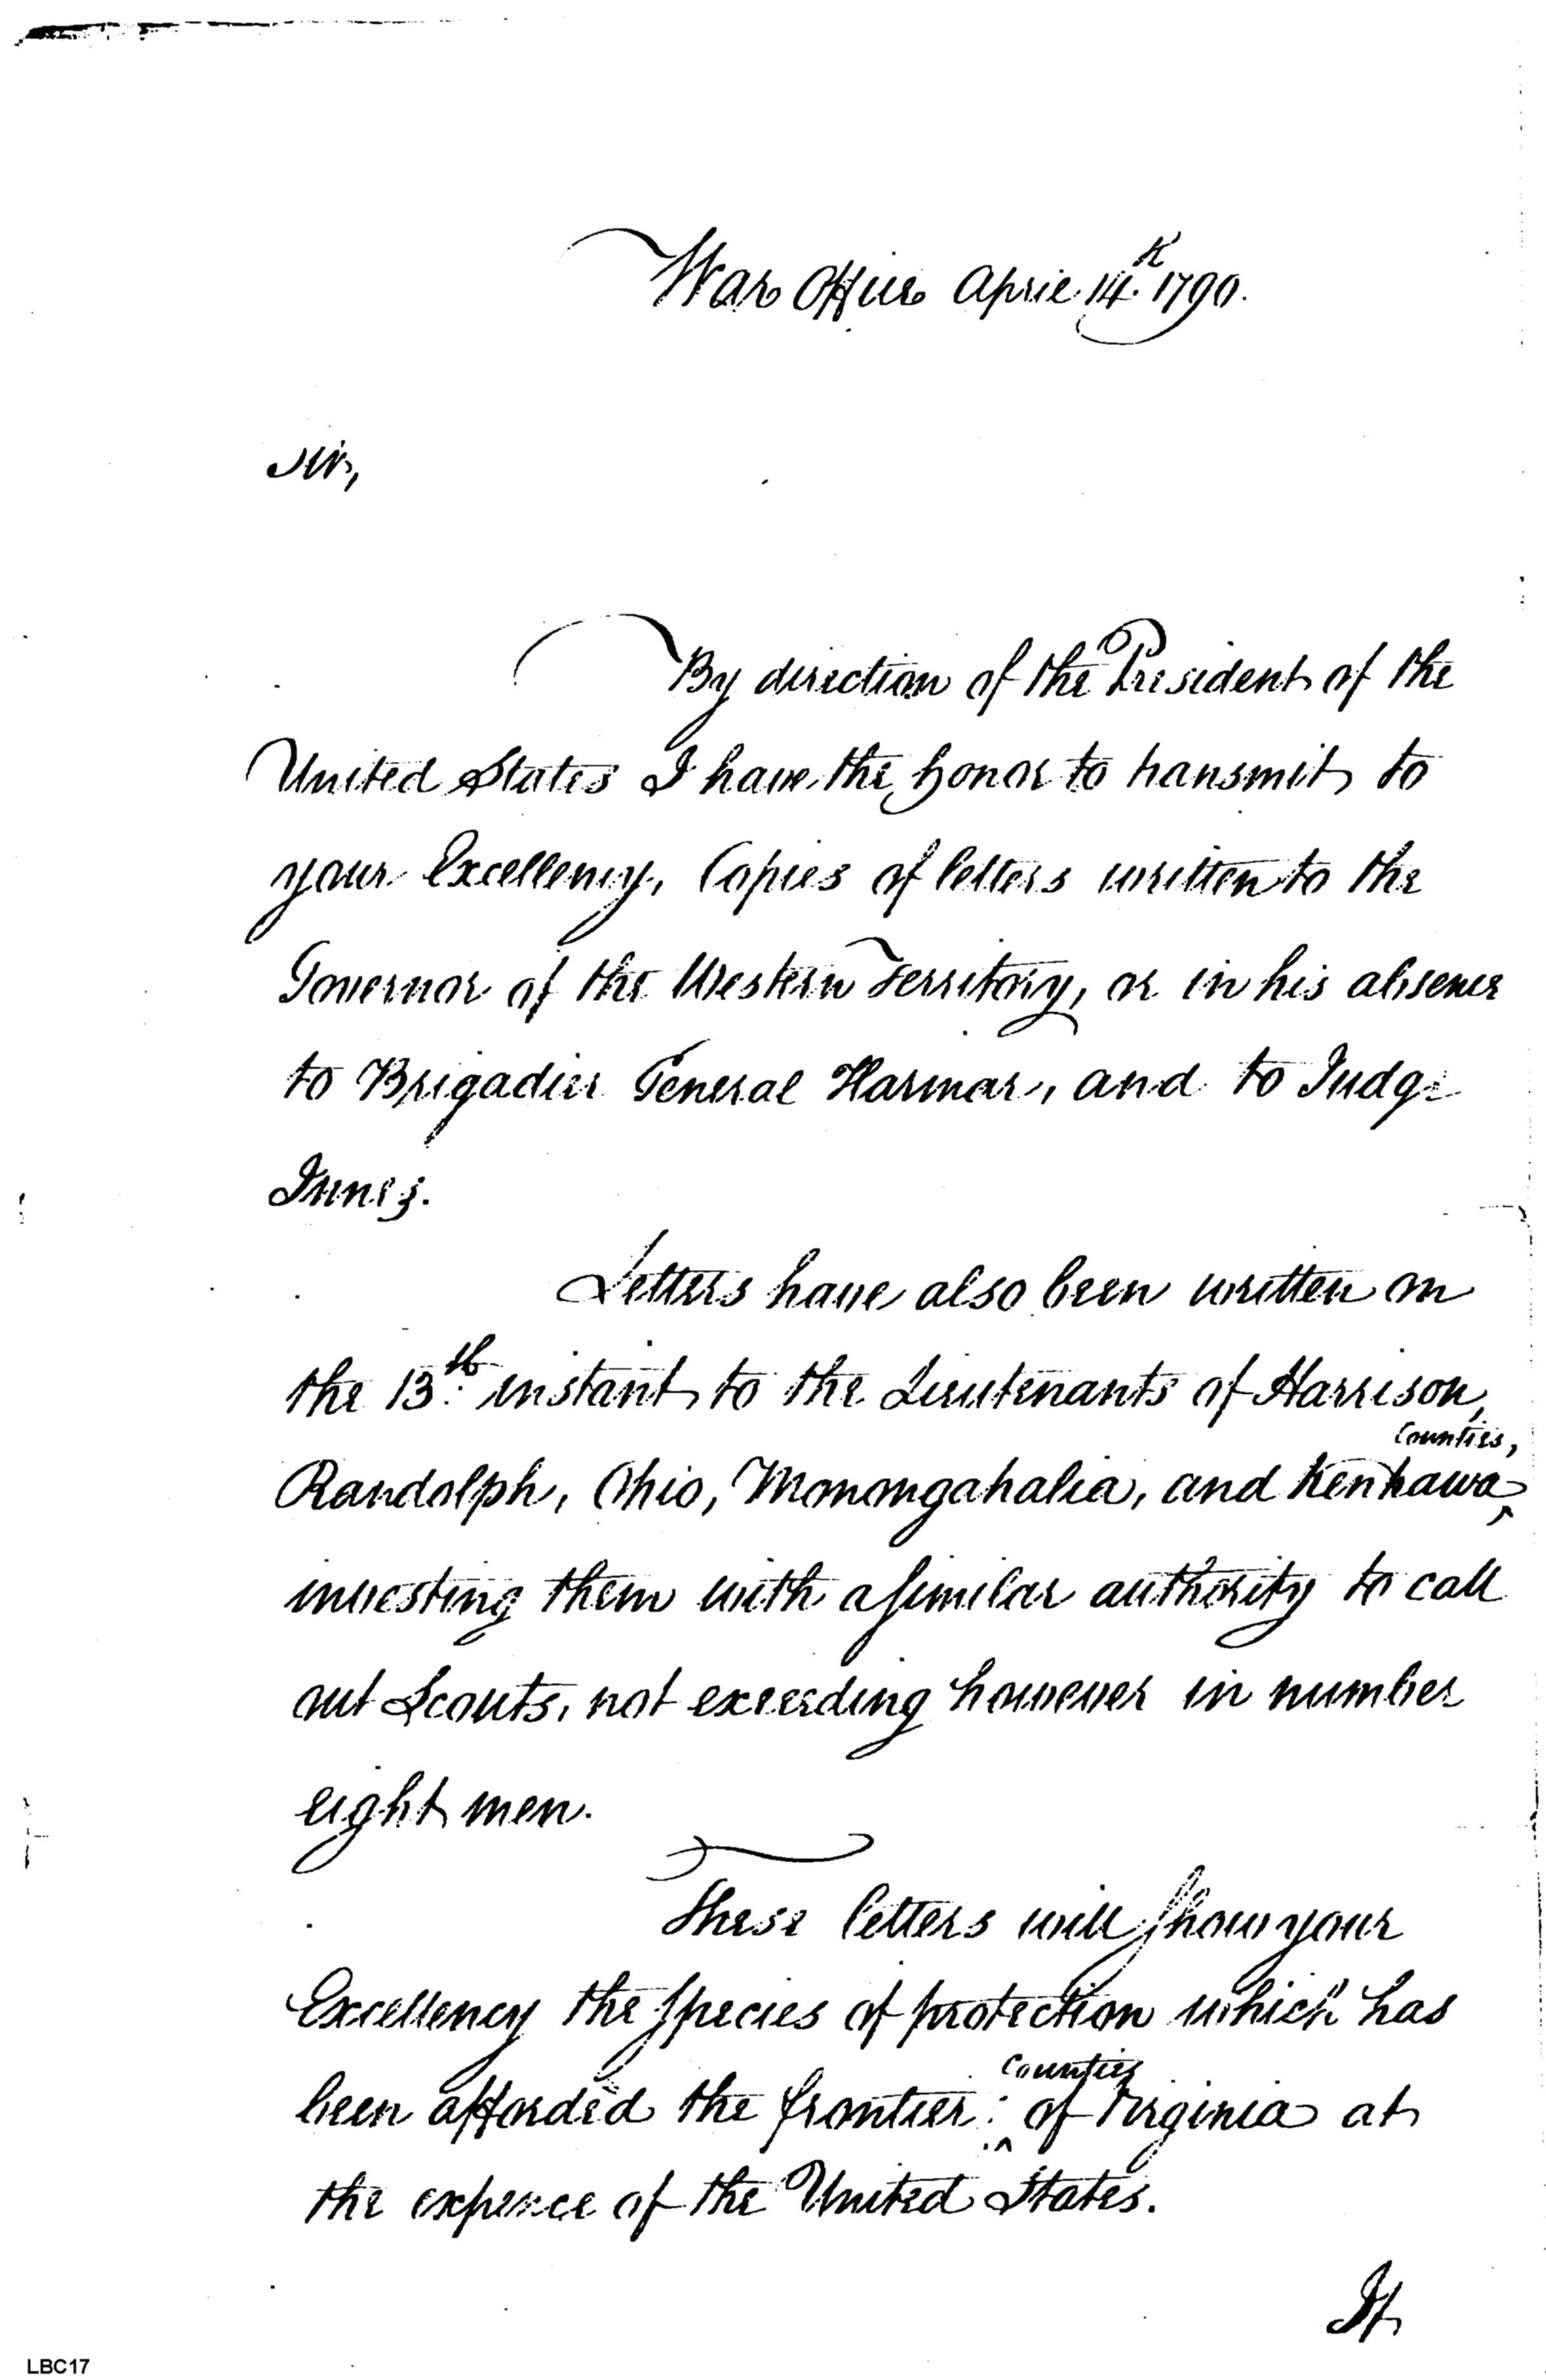 War Office April 14th. 1790.
Sir,
By direction of the President of the
United States I have the honor to transmit to
your Excellency, Copies of letters written to the
Governor of the Western Territory, or in his absence
to Brigadier General Harmar, and to Judge
Innes.
Letters have also been written on
the 13th. instant to the Lieutenants of Harrison,
Counties,
Randolph, Ohio, Monongahalia, and Kenhawa ^
investing them with a similar authority to call
out Scouts, not exceeding however in number
eight men.
These letters will show your
Excellency the species of protection which has
Counties
been afforded the frontier ^ of Virginia at
the expence of the United States.
It
LBC17